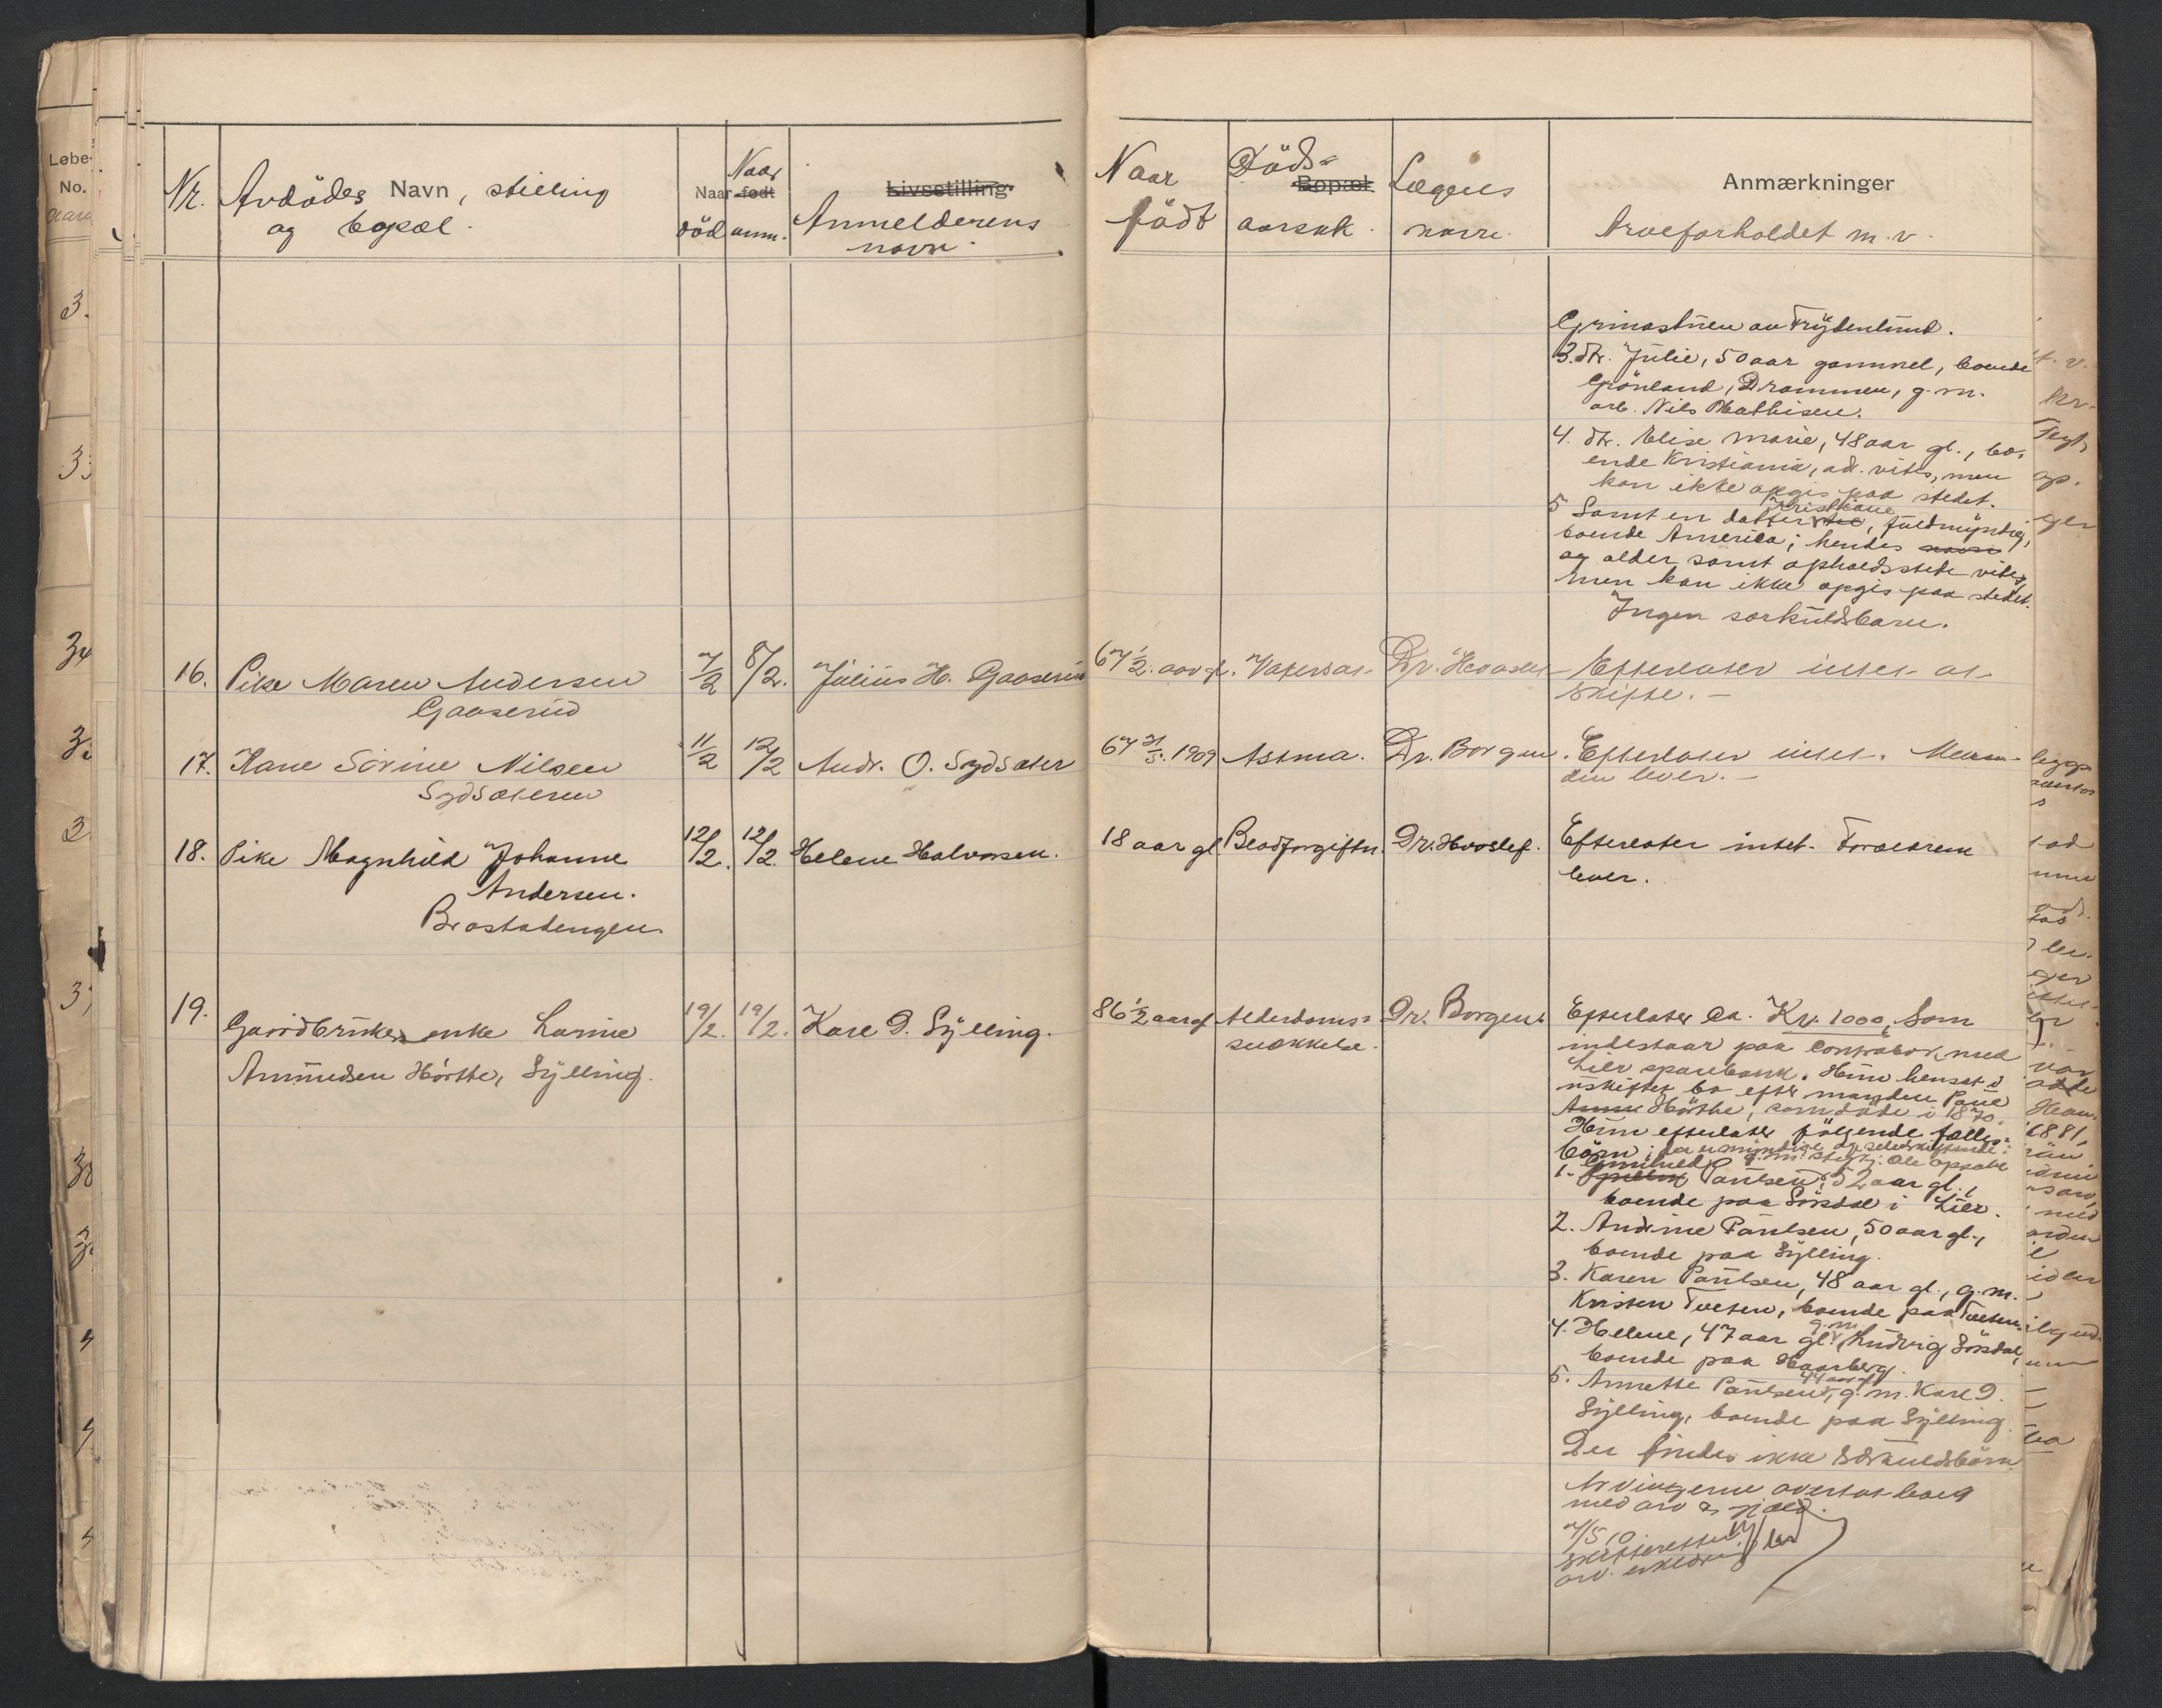 Løbe-
No.
Nr.
Avdödes Navn, stilling
og bopæl.
Naar
död
Naar
født
anm.
Livsstilling
Anmelderens
navn.
Naar
född
Döds-
Bopæl
aarsak.
Lægens
navn.
Anmærkninger
Arveforholdet m.v.
Grinastuen av Frydenlund.
3. dtr. Julie, 50 aar gammel, boende
Grönland, Drammen, g.m.
arb. Nils Mathisen.
4. dtr. Elise Marie, 48 aar gl., bo-
ende Kristiania, adr. vites, men
kan ikke opgis paa stedet.
Kristiane
5 Samt en datter, fuldmyndig,
boende America; hendes navn
og alder samt opholdssted vites,
men kan ikke opgis paa stedet.
Ingen særkuldsbarn.
16. Pike Maren Andersen 7/2 8/2. Julius H. Gaaserud 67 1/2 aar gl. Vatersot. Dr. Hvoslef Efterlater intet at
Gaaserud skifte. —
17. Kone Sörine Nilsen 11/2 12/2 Andr. O. Sydsæter 67 1909 Astma. Dr. Borgen. Efterlater intet. Man-
Sydsæteren den lever. —
18. Pike Magnhild Johanne 12/2. 12/2. Helene Halvorsen. 18 aar gl Blodforgiftn. Dr. Hvoslef. Efterlater intet. Forældrene
Andersen. lever.
Brastadengen
19. Gaardbrukerenke Larine 19/2. 19/2. Karl D. Sylling. 86 1/2 aar gl Alderdoms- Dr. Borgen. Efterlater ca. Kr. 1000, som
Amundsen Hörthe, Sylling. svækkelse. indestaar paa Contrabok med
Lier sparebank. Hun hensat i
uskiftet bo efter manden Paul
Hörthe, som döde i 1870.
Hun efterlater følgende fælles-
börn; der er myndige og selvskiftende:
Gunhild g.m. Ole Opsahl
1. Paulsen, 52 aar gl.,
boende paa Sörsdal i Lier.
2. Andrine Paulsen, 50 aar gl.,
boende paa Sylling.
3. Karen Paulsen, 48 aar gl., g.m.
Kristen Tveten, boende paa Tveten.
g.m.
4. Helene, 47 aar gl. Ludvig Sörsdal,
boende paa Haarberg.
44 aar gl
5. Annette Paulsen, g.m. Karl D.
Sylling, boende paa Sylling.
Der findes ikke særkuldsbörn
Arvingerne overtat boet
med arv & gjæld.
7/5 10
skifteretten
arv. erklær